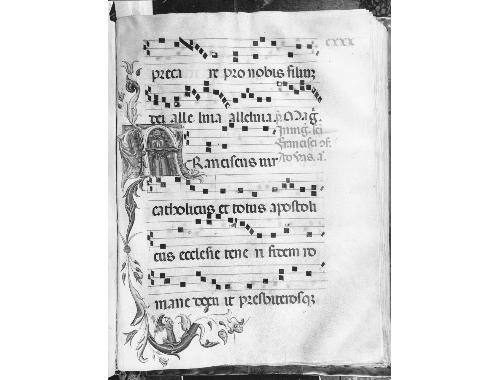 cxxx
preca re pro nobis filium
dei alle luia alleluia. p̄ Mag̃.
In inig̃. sci
Francisci 9f.
Ad vs. a.
Ranciscus uir
catholicus et totus apostoli
cus ecclesie tene ri fidem ro
mane docu it presbiterosq;